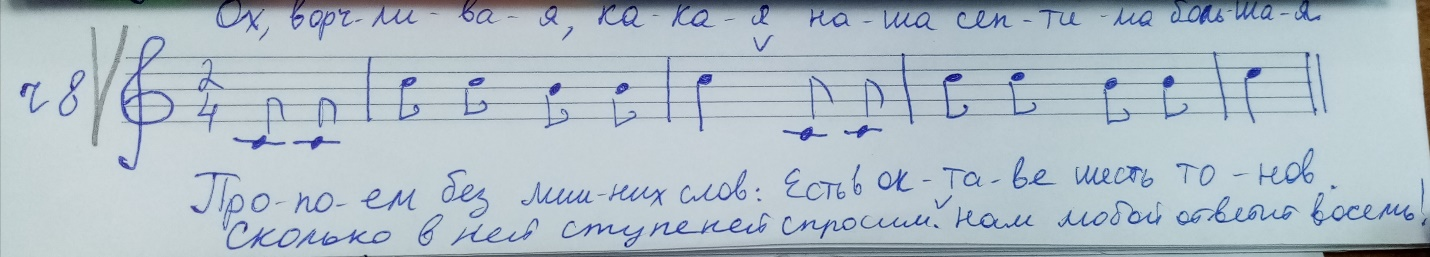 Ох, ворч-ли-ва-я, ка-ка-я на-ша сеп-ти-ма боль-ша-я.
ч8 2/4
Про-по-ем без лиш-них слов: Есть в ок-та-ве шесть то-нов.
Сколько в ней ступеней спросим. Нам любой ответит восемь!